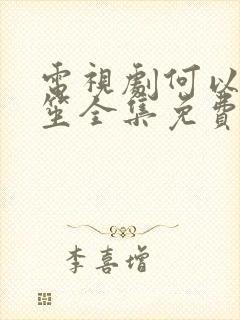 電視劇何以
笙全集免費
李喜增